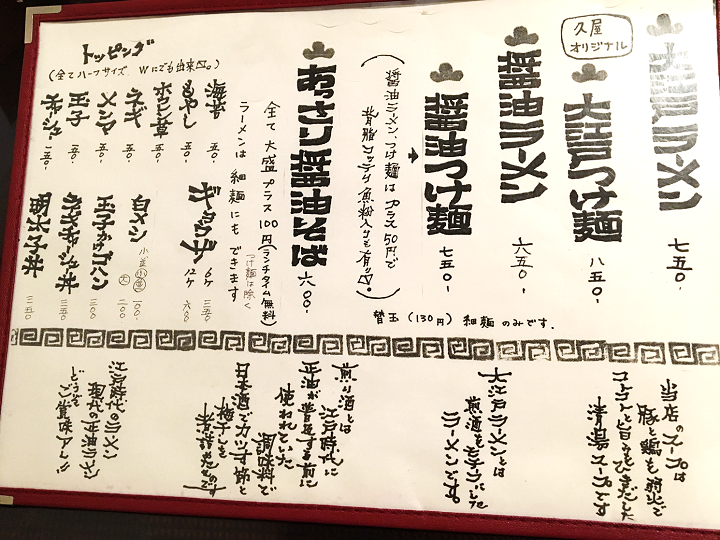 久屋
オリジナル
大江戸ラーメン
七五〇.
大江戸つけ麺
八五〇.
醤油ラーメン
六五〇.
醤油つけ麺
七五〇.
(醤油ラーメン、つけ麺はプラス50円で
背脂コッテリ魚粉入りも有り〼。)
替玉(130円)細麺のみです.
あっさり醤油そば
六〇〇.
全て大盛プラス100円(ランチタイム無料)
ラーメンは細麺にもできます
つけ麺は除く
トッピング
(全てハーフサイズ、Wにでも出来〼。)
海苔 五〇.
もやし 五〇.
ホウレン草 五〇.
ネギ 五〇.
メンマ 五〇.
玉子 五〇.
チャーシュー 一五〇.
ギョウザ 6ヶ 三五〇
12ヶ 六〇〇
白メシ 小 一〇〇.
大 二〇〇
玉子かけゴハン 二〇〇
ネギチャーシュー丼 三五〇
明太子丼 三五〇
当店のスープは
豚と鶏を弱火で
コトコトと旨みをひきだした
清湯スープです
大江戸ラーメンとは
煎酒をモチーフにした
ラーメンです。
煎り酒とは
江戸時代に
正油が普及する前に
使われていた
調味料で
日本酒でカツオ節と
梅干しを
煮詰めたものです
江戸時代のラーメン
現代の正油ラーメン
どうぞ
ご賞味アレ!!